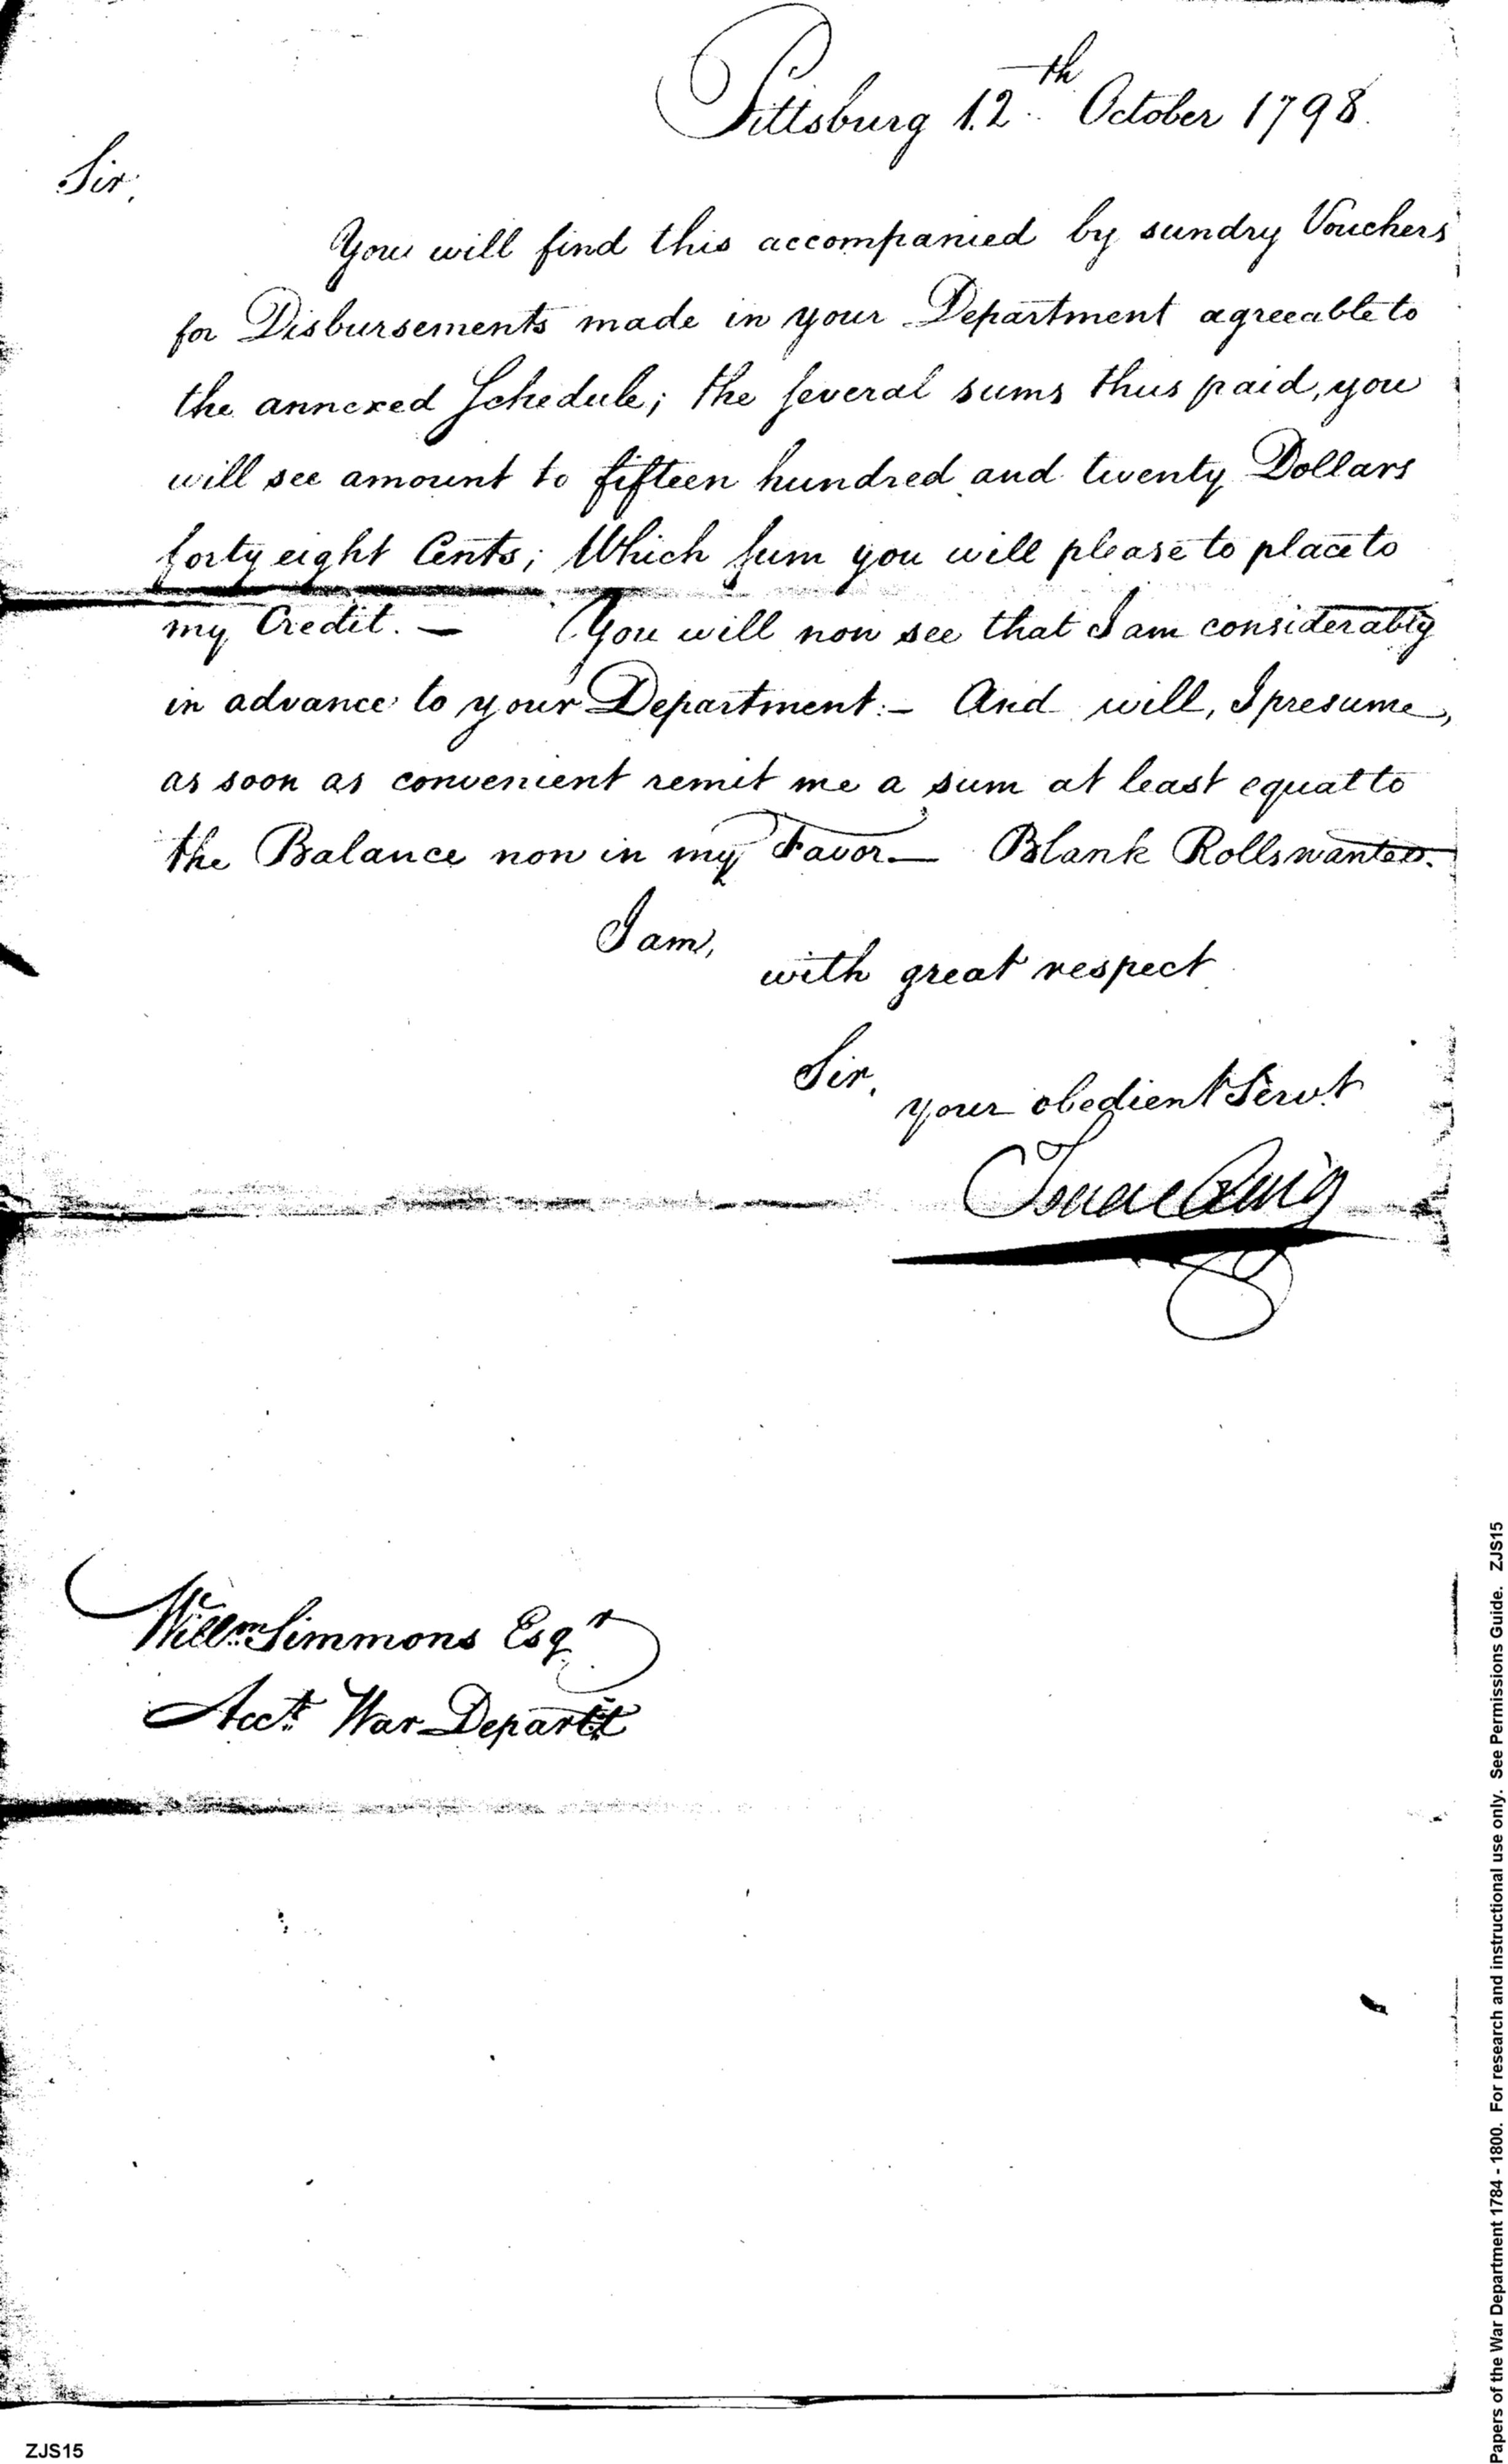 Pittsburg 12th October 1798.
Sir,
You will find this accompanied by sundry Vouchers
for Disbursements made in your Department agreeable to
the annexed Schedule; the several sums thus paid, you
will see amount to fifteen hundred and twenty Dollars
forty eight Cents; Which sum you will please to place to
my Credit. — You will now see that I am considerably
in advance to your Department:- And will, I presume,
as soon as convenient remit me a sum at least equal to
the Balance now in my Favor — Blank Rolls wanted.
I am,
with great respect
Sir,
your obedient Servt
Isaac Craig
Willm Simmons Esqr
Acct War Departt
ZJS15
Papers of the War Department 1784 - 1800. For research and instructional use only. See Permissions Guide. ZJS15